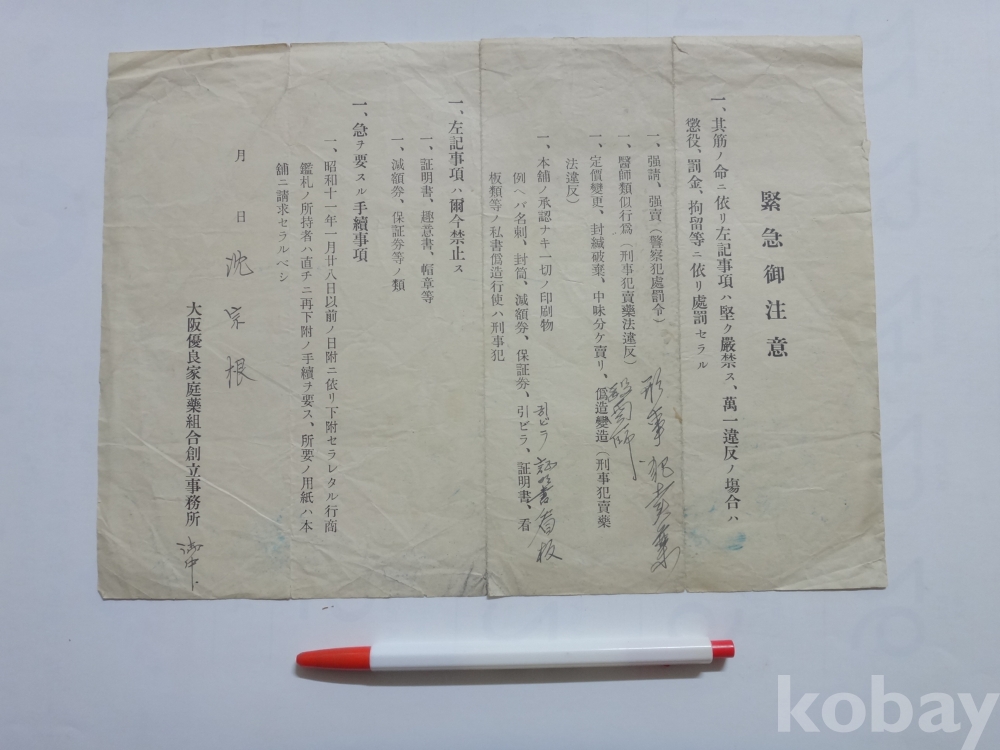 緊急御注意
一、其筋ノ命ニ依リ左記事項ハ堅ク嚴禁ス、萬一違反ノ塲合ハ
懲役、罰金、拘留等ニ依リ處罰セラル
一、强請、强賣(警察犯處罰令)
一、醫師類似行爲(刑事犯賣藥法違反)
一、定價變更、封緘破棄、中味分ケ賣リ、僞造變造(刑事犯賣藥
法違反)
一、本舖ノ承認ナキ一切ノ印刷物
例ヘバ名刺、封筒、減額券、保証券、引ビラ、証明書、看
板類等ノ私書僞造行使ハ刑事犯
刑事犯賣藥
醫師
引ビラ 証明書看板
一、左記事項ハ爾今禁止ス
一、証明書、趣意書、帽章等
一、減額券、保証券等ノ類
一、急ヲ要スル手續事項
一、昭和十一年一月廿八日以前ノ日附ニ依リ下附セラレタル行商
鑑札ノ所持者ハ直チニ再下附ノ手續ヲ要ス、所要ノ用紙ハ本
舖ニ請求セラルベシ
月 日 沈宗根
大阪優良家庭藥組合創立事務所 御中
kobay